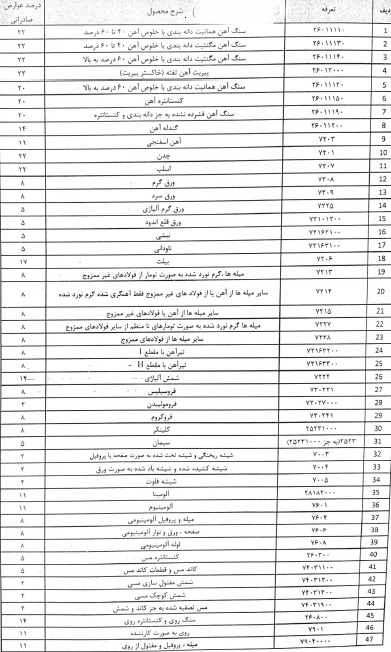 ردیف تعرفه شرح محصول درصد عوارض صادراتی
1 ۲۶۰۱۱۱۱۰ سنگ آهن هماتیت دانه بندی با خلوص آهن ۴۰ تا ۶۰ درصد ۲۲
2 ۲۶۰۱۱۱۳۰ سنگ آهن مگنتیت دانه بندی با خلوص آهن ۴۰ تا ۶۰ درصد ۲۲
3 ۲۶۰۱۱۱۴۰ سنگ آهن مگنتیت دانه بندی با خلوص آهن ۶۰ درصد به بالا ۲۲
4 ۲۶۰۱۲۰۰۰ پیریت آهن تفته (خاکستر پیریت) ۲۲
5 ۲۶۰۱۱۱۲۰ سنگ آهن هماتیت دانه بندی با خلوص آهن ۶۰ درصد به بالا ۲۰
6 ۲۶۰۱۱۱۵۰ کنسانتره آهن ۲۰
7 ۲۶۰۱۱۱۹۰ سنگ آهن فشرده نشده به جز دانه بندی و کنسانتره ۲۰
8 ۲۶۰۱۱۲۰۰ گندله آهن ۱۴
9 ۷۲۰۳ آهن اسفنجی ۱۱
10 ۷۲۰۱ چدن ۲۲
11 ۷۲۰۷ اسلب ۲۲
12 ۷۲۰۸ ورق گرم ۸
13 ۷۲۰۹ ورق سرد ۸
14 ۷۲۲۵ ورق گرم آلیاژی ۵
15 ۷۲۱۰۱۲۰۰ ورق قلع اندود ۵
16 ۷۲۱۶۲۱۰۰ نبشی ۵
17 ۷۲۱۶۳۱۰۰ ناودانی ۵
18 ۷۲۰۶ بیلت ۱۷
19 ۷۲۱۳ میله ها، گرم نورد شده به صورت تومار از فولادهای غیر ممزوج ۸
20 ۷۲۱۴ سایر میله ها از آهن یا از فولاد های غیر ممزوج فقط آهنگری شده گرم نورد شده ۸
21 ۷۲۱۵ سایر میله ها از آهن یا فولادهای غیر ممزوج ۸
22 ۷۲۲۷ میله ها گرم نورد شده به صورت تومارهای نا منظم از سایر فولادهای ممزوج ۸
23 ۷۲۲۸ سایر میله ها از فولادهای ممزوج ۸
24 ۷۲۱۶۳۲۰۰ تیرآهن با مقطع I ۸
25 ۷۲۱۶۳۳۰۰ تیرآهن با مقطع H ۸
26 ۷۲۲۴ شمش آلیاژی ۱۴
27 ۷۲۰۲۲۱ فروسیلیس ۸
28 ۷۲۰۲۷۰۰۰ فرومولیبدن ۲
29 ۷۲۰۲۴۱ فروکروم ۸
30 ۲۵۲۳۱۰۰۰ کلینکر ۸
31 ۲۵۲۳(به جز ۲۵۲۳۱۰۰۰) سیمان ۵
32 ۷۰۰۳ شیشه ریختگی و شیشه تخت شده به صورت صفحه یا پروفیل ۲
33 ۷۰۰۴ شیشه کشیده شده و شیشه باد شده به صورت ورق ۲
34 ۷۰۰۵ شیشه فلوت ۲
35 ۲۸۱۸۲۰۰۰ آلومینا ۱۱
36 ۷۶۰۱ آلومینیوم ۱۱
37 ۷۶۰۴ میله و پروفیل آلومینیومی ۸
38 ۷۶۰۶ صفحه ، ورق و نوار آلومینیومی ۸
39 ۷۶۰۸ لوله آلومینیومی ۸
40 ۲۶۰۳۰۰ کنسانتره مس ۵
41 ۷۴۰۳۱۱۰۰ کاتد مس و قطعات کاتد مس ۵
42 ۷۴۰۳۱۲۰۰ شمش مفتول سازی مسی ۲
43 ۷۴۰۳۱۳۰۰ شمش کوچک مسی ۲
44 ۷۴۰۳۱۹۰۰ مس تصفیه شده به جز کاتد و شمش ۲
45 ۲۶۰۸۰۰ سنگ روی و کنسانتره روی ۱۴
46 ۷۹۰۱ روی به صورت کارنشده ۱۱
47 ۷۹۰۴۰۰۰۰ میله ، پروفیل و مفتول از روی ۱۱